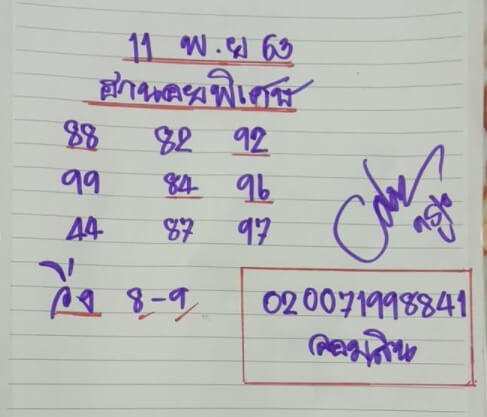 11 พ.ย 63
ฮานอยพิเศษ
88 82 92
99 84 96
44 87 97
วิ่ง 8-9
020071998841
ออมสิน